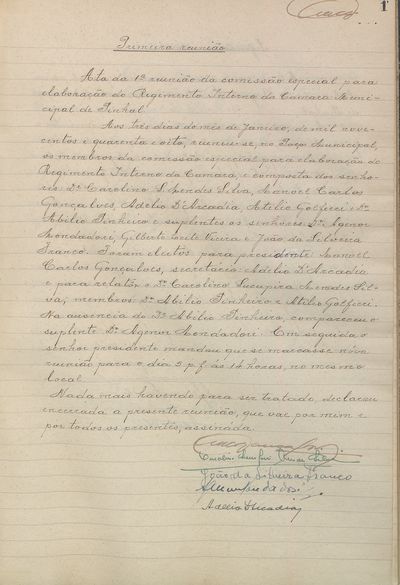 1
Primeira reunião
Ata da 1ª reunião da comissão especial para
elaboração do Regimento Interno da Camara Muni-
cipal de Pinhal.
Aos três dias do mês de Janeiro, de mil nove-
centos e quarenta e oito, reuniu-se, no Paço Municipal,
os membros da comissão especial para elaboração do
Regimento Interno da Camara, e composta dos senho-
res Dr. Carolino S. Mendes Silva, Manoel Carlos
Gonçalves, Adelio D'Arcadia, Atelio Golfieri e Dr.
Abilio Pinheiro e suplentes os senhores Dr. Agenor
Mondadori, Gilberto Leite Vieira e João da Silveira
Franco. Foram eleitos para presidente Manoel
Carlos Gonçalves, secretário Adelio D'Arcadia
e para relator o Dr. Carolino Sucupira Mendes Sil-
va, membros Dr. Abilio Pinheiro e Atelio Golfieri.
Na ausencia do Dr. Abilio Pinheiro, compareceu o
suplente Dr. Agenor Mondadori. Em seguida o
senhor presidente mandou que se marcasse nova
reunião para o dia 5 p.f. ás 14 horas, no mesmo
local.
Nada mais havendo para ser tratado, declarou
encerrada a presente reunião, que vae por mim e
por todos os presentes, assinada.
João da Silveira Franco
Adelio D'Arcadia